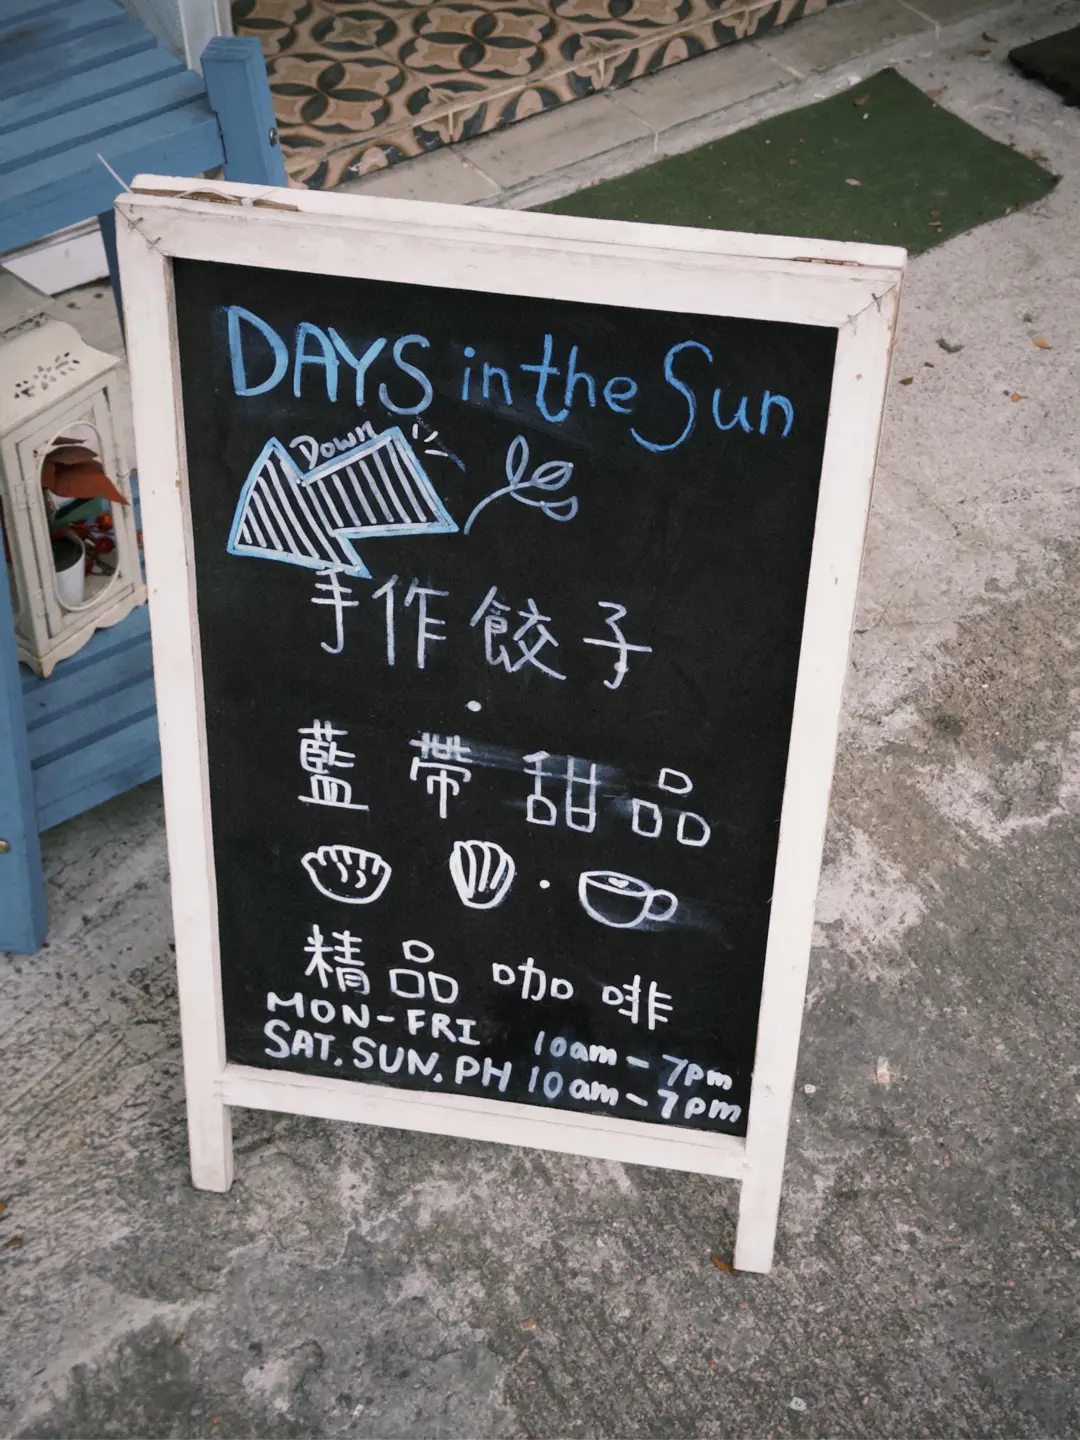 DAYS in the Sun
Down
手作餃子
·
藍帶甜品
·
精品咖啡
MON-FRI 10am-7pm
SAT, SUN, PH 10am-7pm